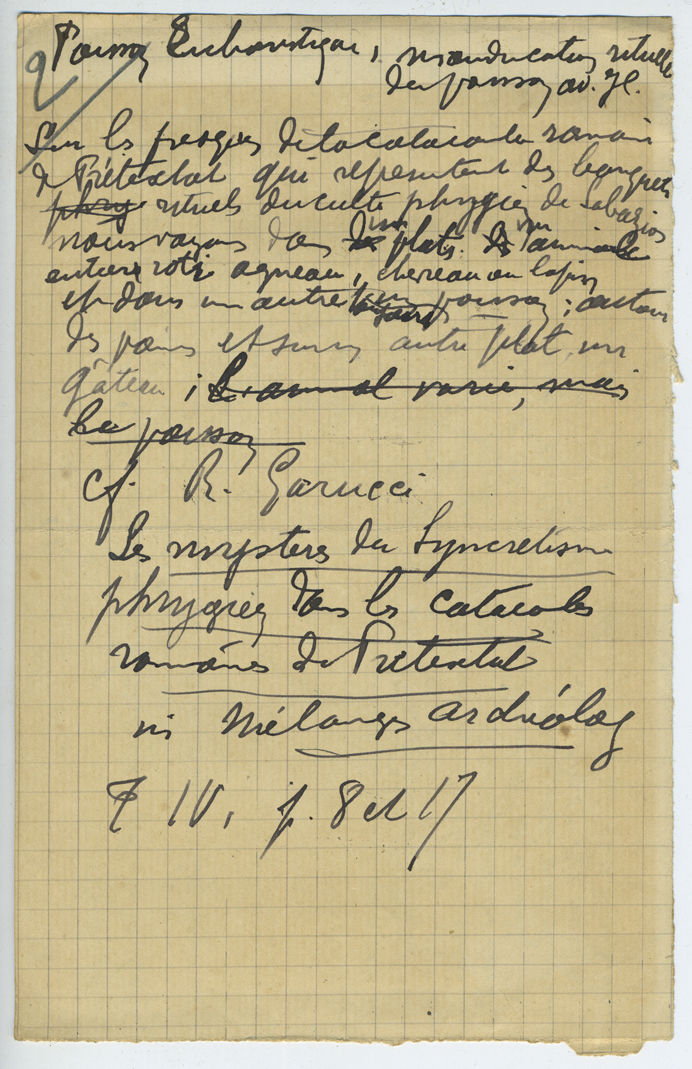 Poisson Eucharistique, manducation rituelle
du poisson av. JC.
Sur les fresques de la catacombe romaine
de Prétextat qui représentent des banquets
phryg rituels du culte phrygien de Sabazios
nous voyons dans un plat un animal
entier rôti agneau, chevreau ou lapin
et dans un autre un poisson ; autour
des pains et sur un autre plat un
gâteau ; L'animal varie, mais
le poisson
cf. R. Garucci
Les mystères du Syncrétisme
phrygien dans les catacombes
romaines de Prétextat
in Mélanges Archéolog
T IV, p. 8 et 17